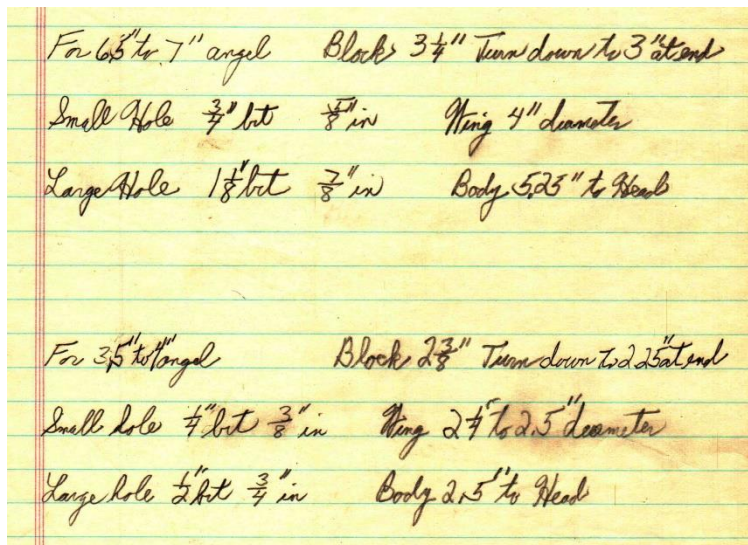 For 6.5" to 7" angel Block 3 1/4" Turn down to 3" at end
Small Hole 3/4" bit 5/8" in Wing 4" diameter
Large Hole 1 1/8" bit 7/8" in Body 5.25" to Head
For 3.5" to 4" angel Block 2 3/8" Turn down to 2.25" at end
Small hole 1/4" bit 3/8" in Wing 2 1/4" to 2.5" diameter
Large hole 1/2" bit 3/4" in Body 2.5" to Head